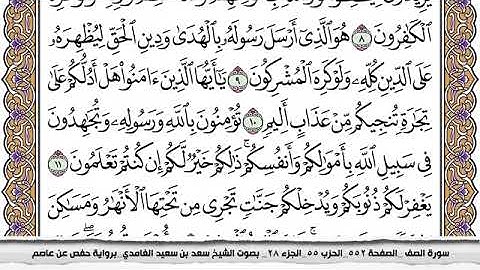 ٱلْكَٰفِرُونَ ٨ هُوَ ٱلَّذِىٓ أَرْسَلَ رَسُولَهُۥ بِٱلْهُدَىٰ وَدِينِ ٱلْحَقِّ لِيُظْهِرَهُۥ
عَلَى ٱلدِّينِ كُلِّهِۦ وَلَوْ كَرِهَ ٱلْمُشْرِكُونَ ٩ يَٰٓأَيُّهَا ٱلَّذِينَ ءَامَنُوا۟ هَلْ أَدُلُّكُمْ عَلَىٰ
تِجَٰرَةٍ تُنجِيكُم مِّنْ عَذَابٍ أَلِيمٍ ١٠ تُؤْمِنُونَ بِٱللَّهِ وَرَسُولِهِۦ وَتُجَٰهِدُونَ
فِى سَبِيلِ ٱللَّهِ بِأَمْوَٰلِكُمْ وَأَنفُسِكُمْ ۚ ذَٰلِكُمْ خَيْرٌ لَّكُمْ إِن كُنتُمْ تَعْلَمُونَ ١١
يَغْفِرْ لَكُمْ ذُنُوبَكُمْ وَيُدْخِلْكُمْ جَنَّٰتٍ تَجْرِى مِن تَحْتِهَا ٱلْأَنْهَٰرُ وَمَسَٰكِنَ
سورة الصف _الصفحة ٥٥٢_ الحزب ٥٥_ الجزء ٢٨_ بصوت الشيخ سعد بن سعيد الغامدي_ برواية حفص عن عاصم